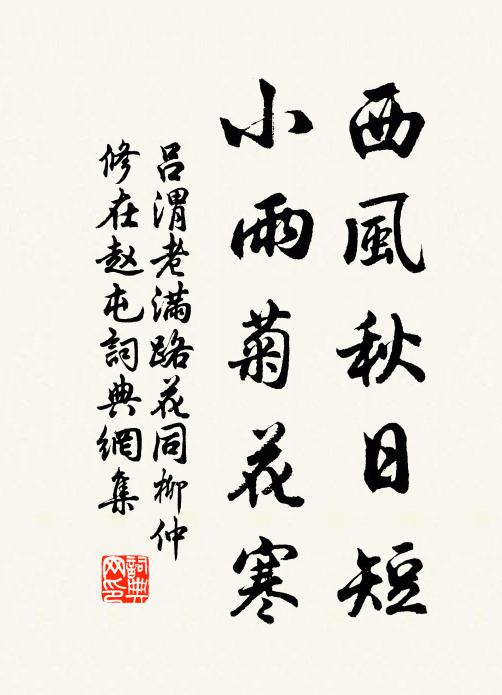 西風秋日短
小雨菊花寒
吕渭老满路花同柳仲
修在赵屯詞典網集
詞典
网印